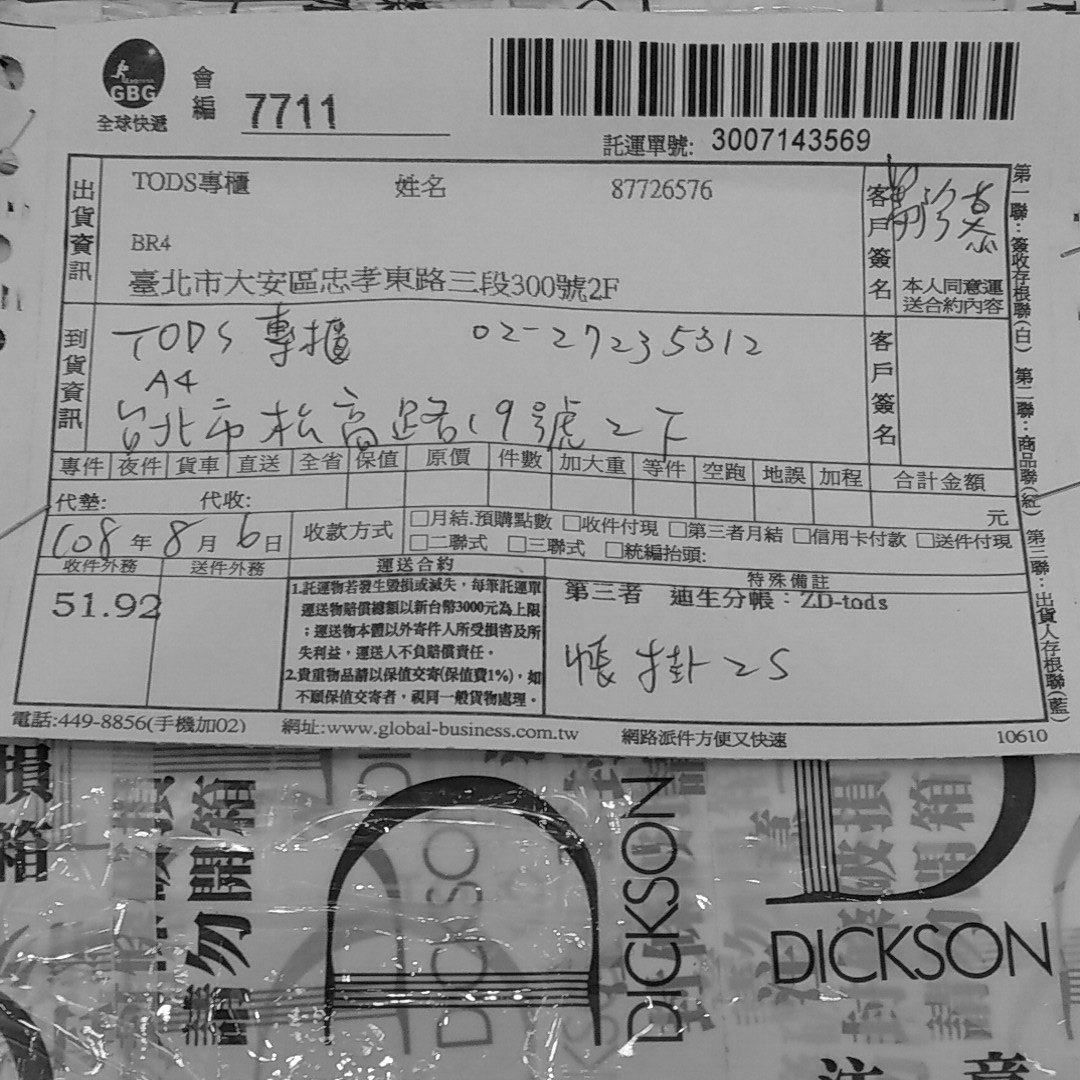 GBG
全球快遞
會編 7711
託運單號: 3007143569
出貨資訊
TODS專櫃 姓名 87726576
BR4
臺北市大安區忠孝東路三段300號2F
客戶簽名
本人同意運
送合約內容
到貨資訊
TODS 專櫃 02-27235312
A4
台北市松高路19號2F
客戶簽名
專件 夜件 貨車 直送 全省 保值 原價 件數 加大重 等件 空跑 地誤 加程 合計金額
代墊: 代收: 元
108年8月6日
收款方式
□月結.預購點數 □收件付現 □第三者月結 □信用卡付款 □送件付現
□二聯式 □三聯式 □統編抬頭:
收件外務 送件外務 運送合約 特殊備註
51.92
1.託運物若發生毀損或滅失，每筆託運單
運送物賠償總額以新台幣3000元為上限
；運送物本體以外寄件人所受損害及所
失利益，運送人不負賠償責任。
2.貴重物品請以保值交寄(保值費1%)，如
不願保值交寄者，視同一般貨物處理。
第三者 迪生分帳：ZD-tods
帳掛2S
第一聯：簽收存根聯(白) 第二聯：商品聯(紅) 第三聯：出貨人存根聯(藍)
電話:449-8856(手機加02) 網址:www.global-business.com.tw 網路派件方便又快速 10610
損箱
請勿開箱
DICKSON
DICKSON
DICKSON
注意